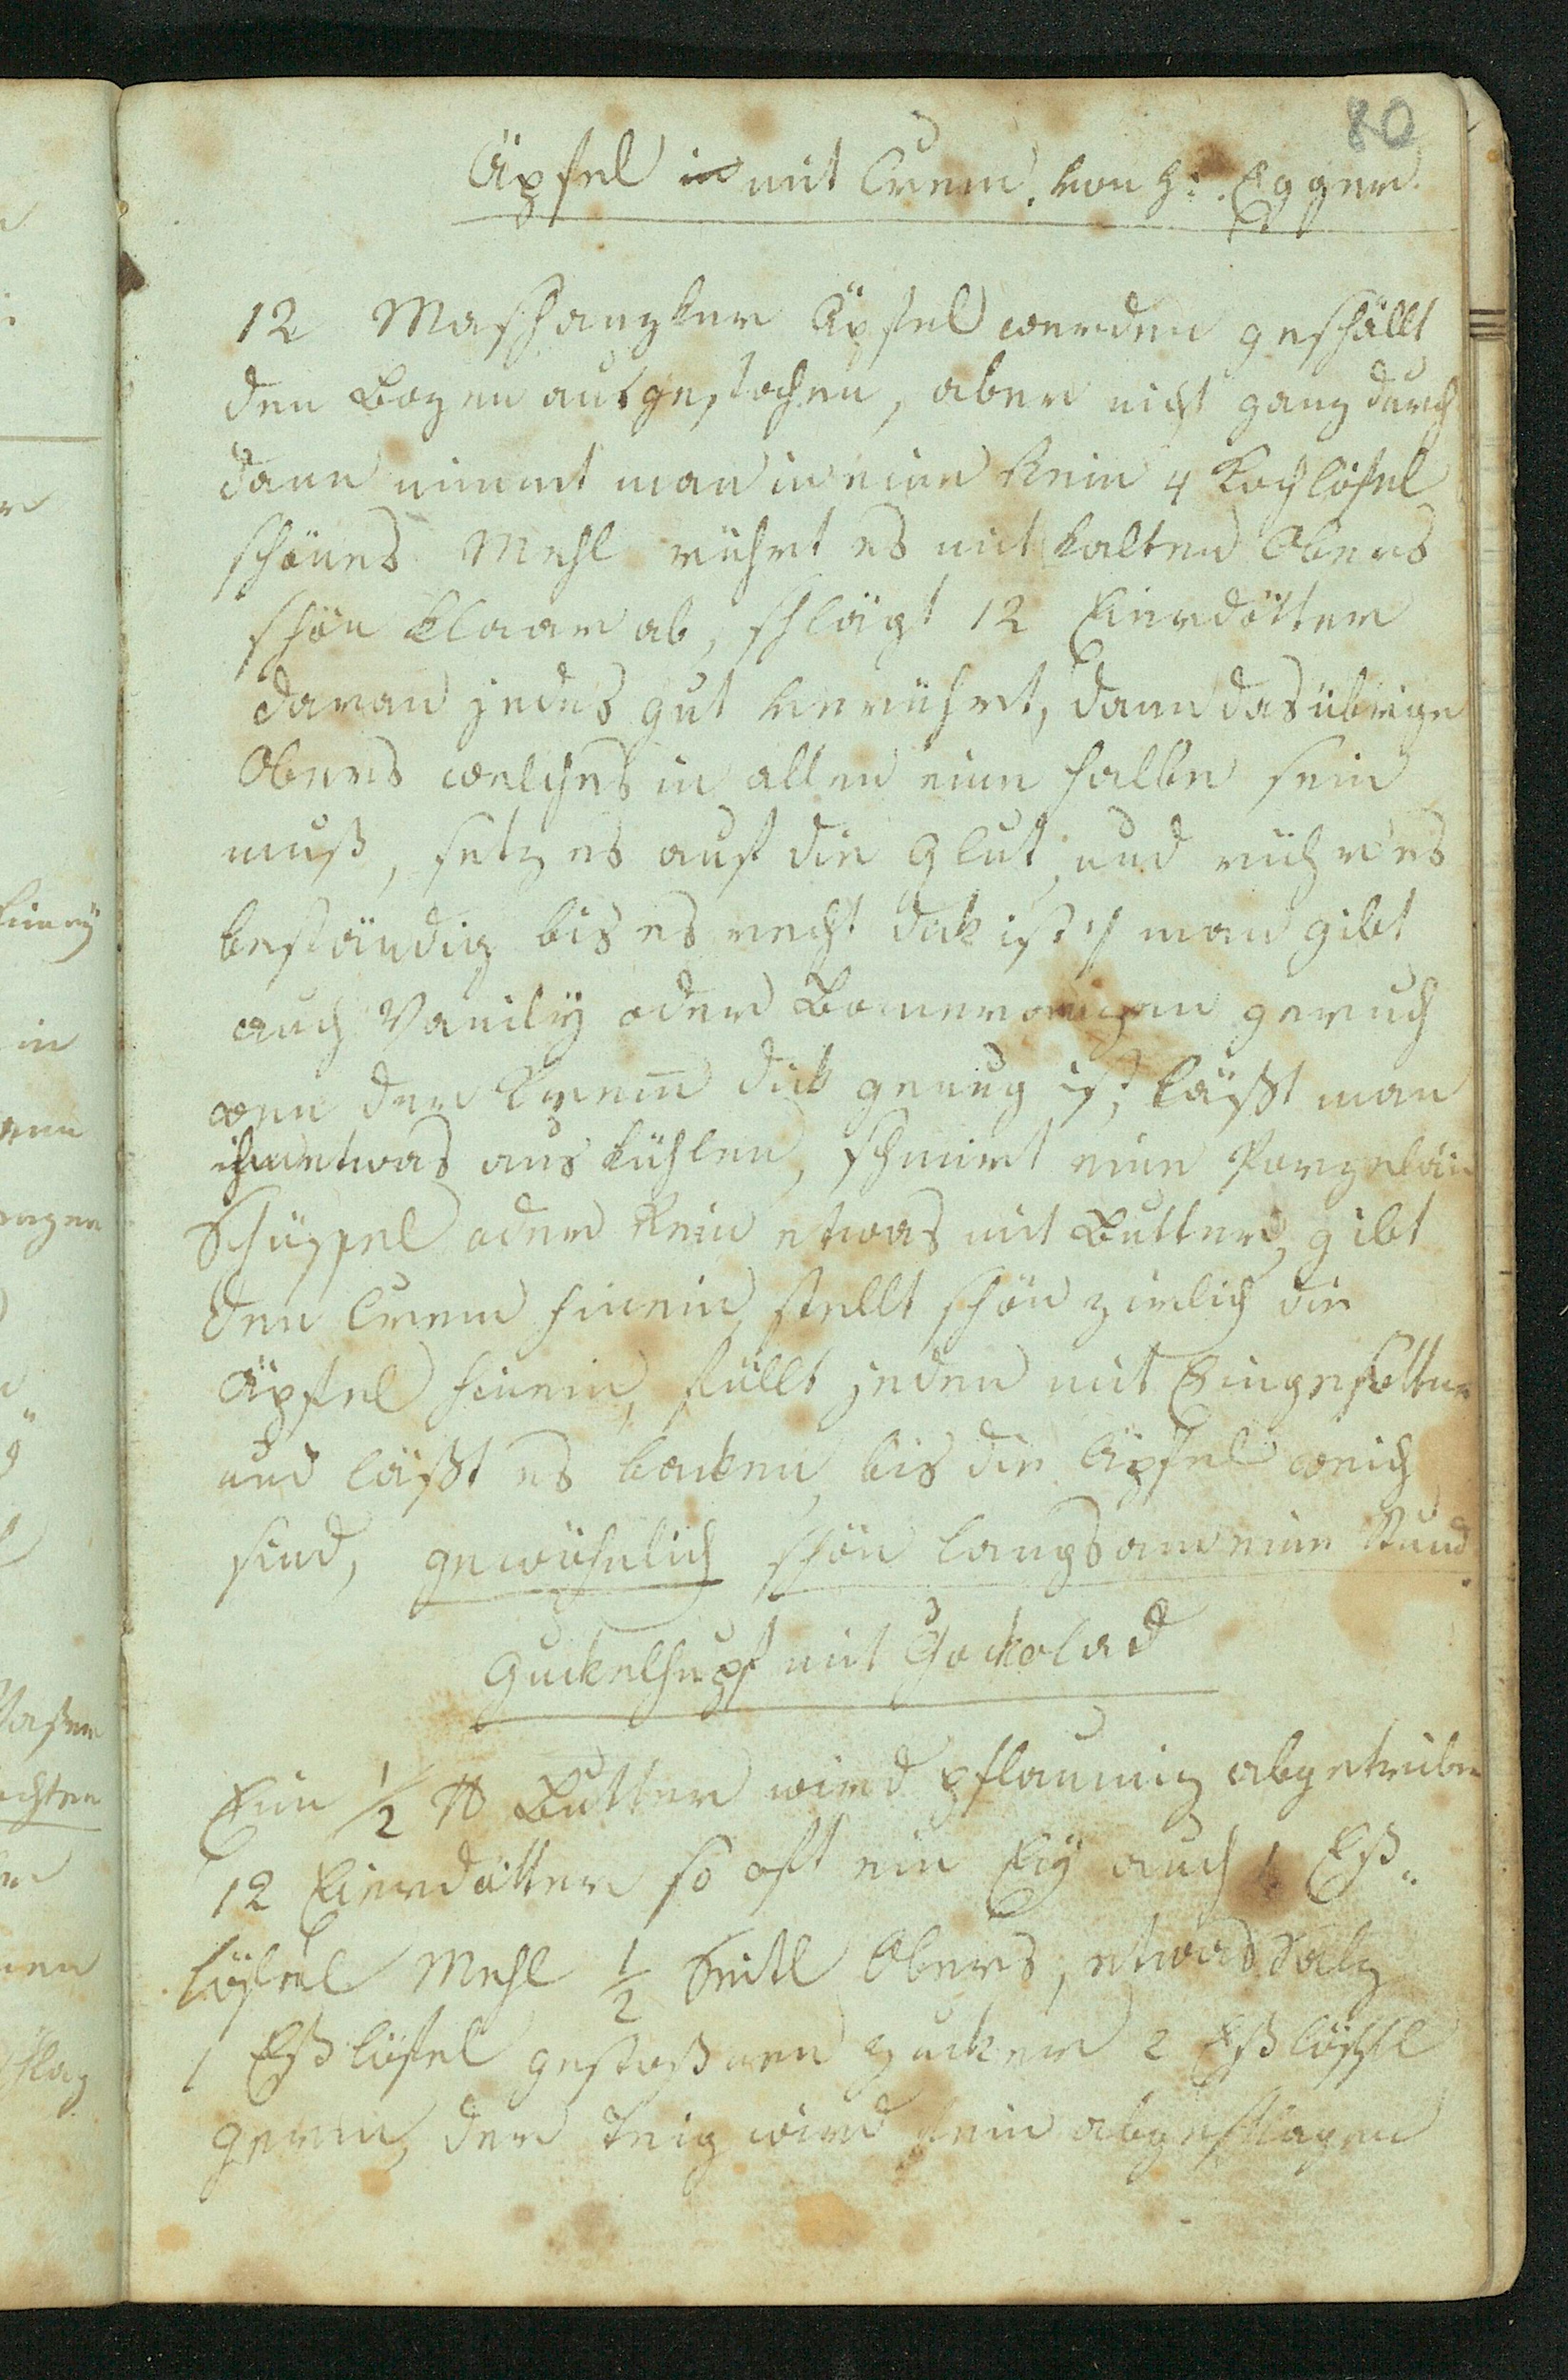 80
Äpfel in mit Crem. von H: Egger
12 Maschanzker Äpfel werden geschällt
den Bozen ausgestochen, aber nicht ganz durch
dann nimmt man in eine Rein 4 Kochlöfel
schönes Mehl rührt es mit kalten Obers
schön klaar ab, schlägt 12 Eierdötter
daran jedes gut verrührt, dann das übrige
Obers welches in allen eine halbe sein
muß, setz es auf die Glut, und rühr es
beständig bis es recht dik ist, man gibt
auch Vanily oder Bomeranzen geruch
wen der Crem̄ dik genug ist, läßt man
ihn etwas aus kühlen, schmirt eine Porzelän
Schüssel oder Rein etwas mit Butter, gibt
den Crem hinein, stellt schön zirlich die
Äpfel hinein, füllt jeden mit Eingesottne
und läßt es backen, bis die Äpfel weich
sind, gewöhnlich schön langsam eine Stund.
Guckelhupf mit Gockolad
Ein 1/2 ℔ Butter wird pflaumig abgetrieben
12 Eierdötter so oft ein Eÿ auch 1 Eß„
löfel Mehl 1/2 Seitl Obers, etwas Salz
1 Eßlöfel gestoßnen Zucker 2 Eßlöffl
Germ, der Teig wird fein abgeschlagen